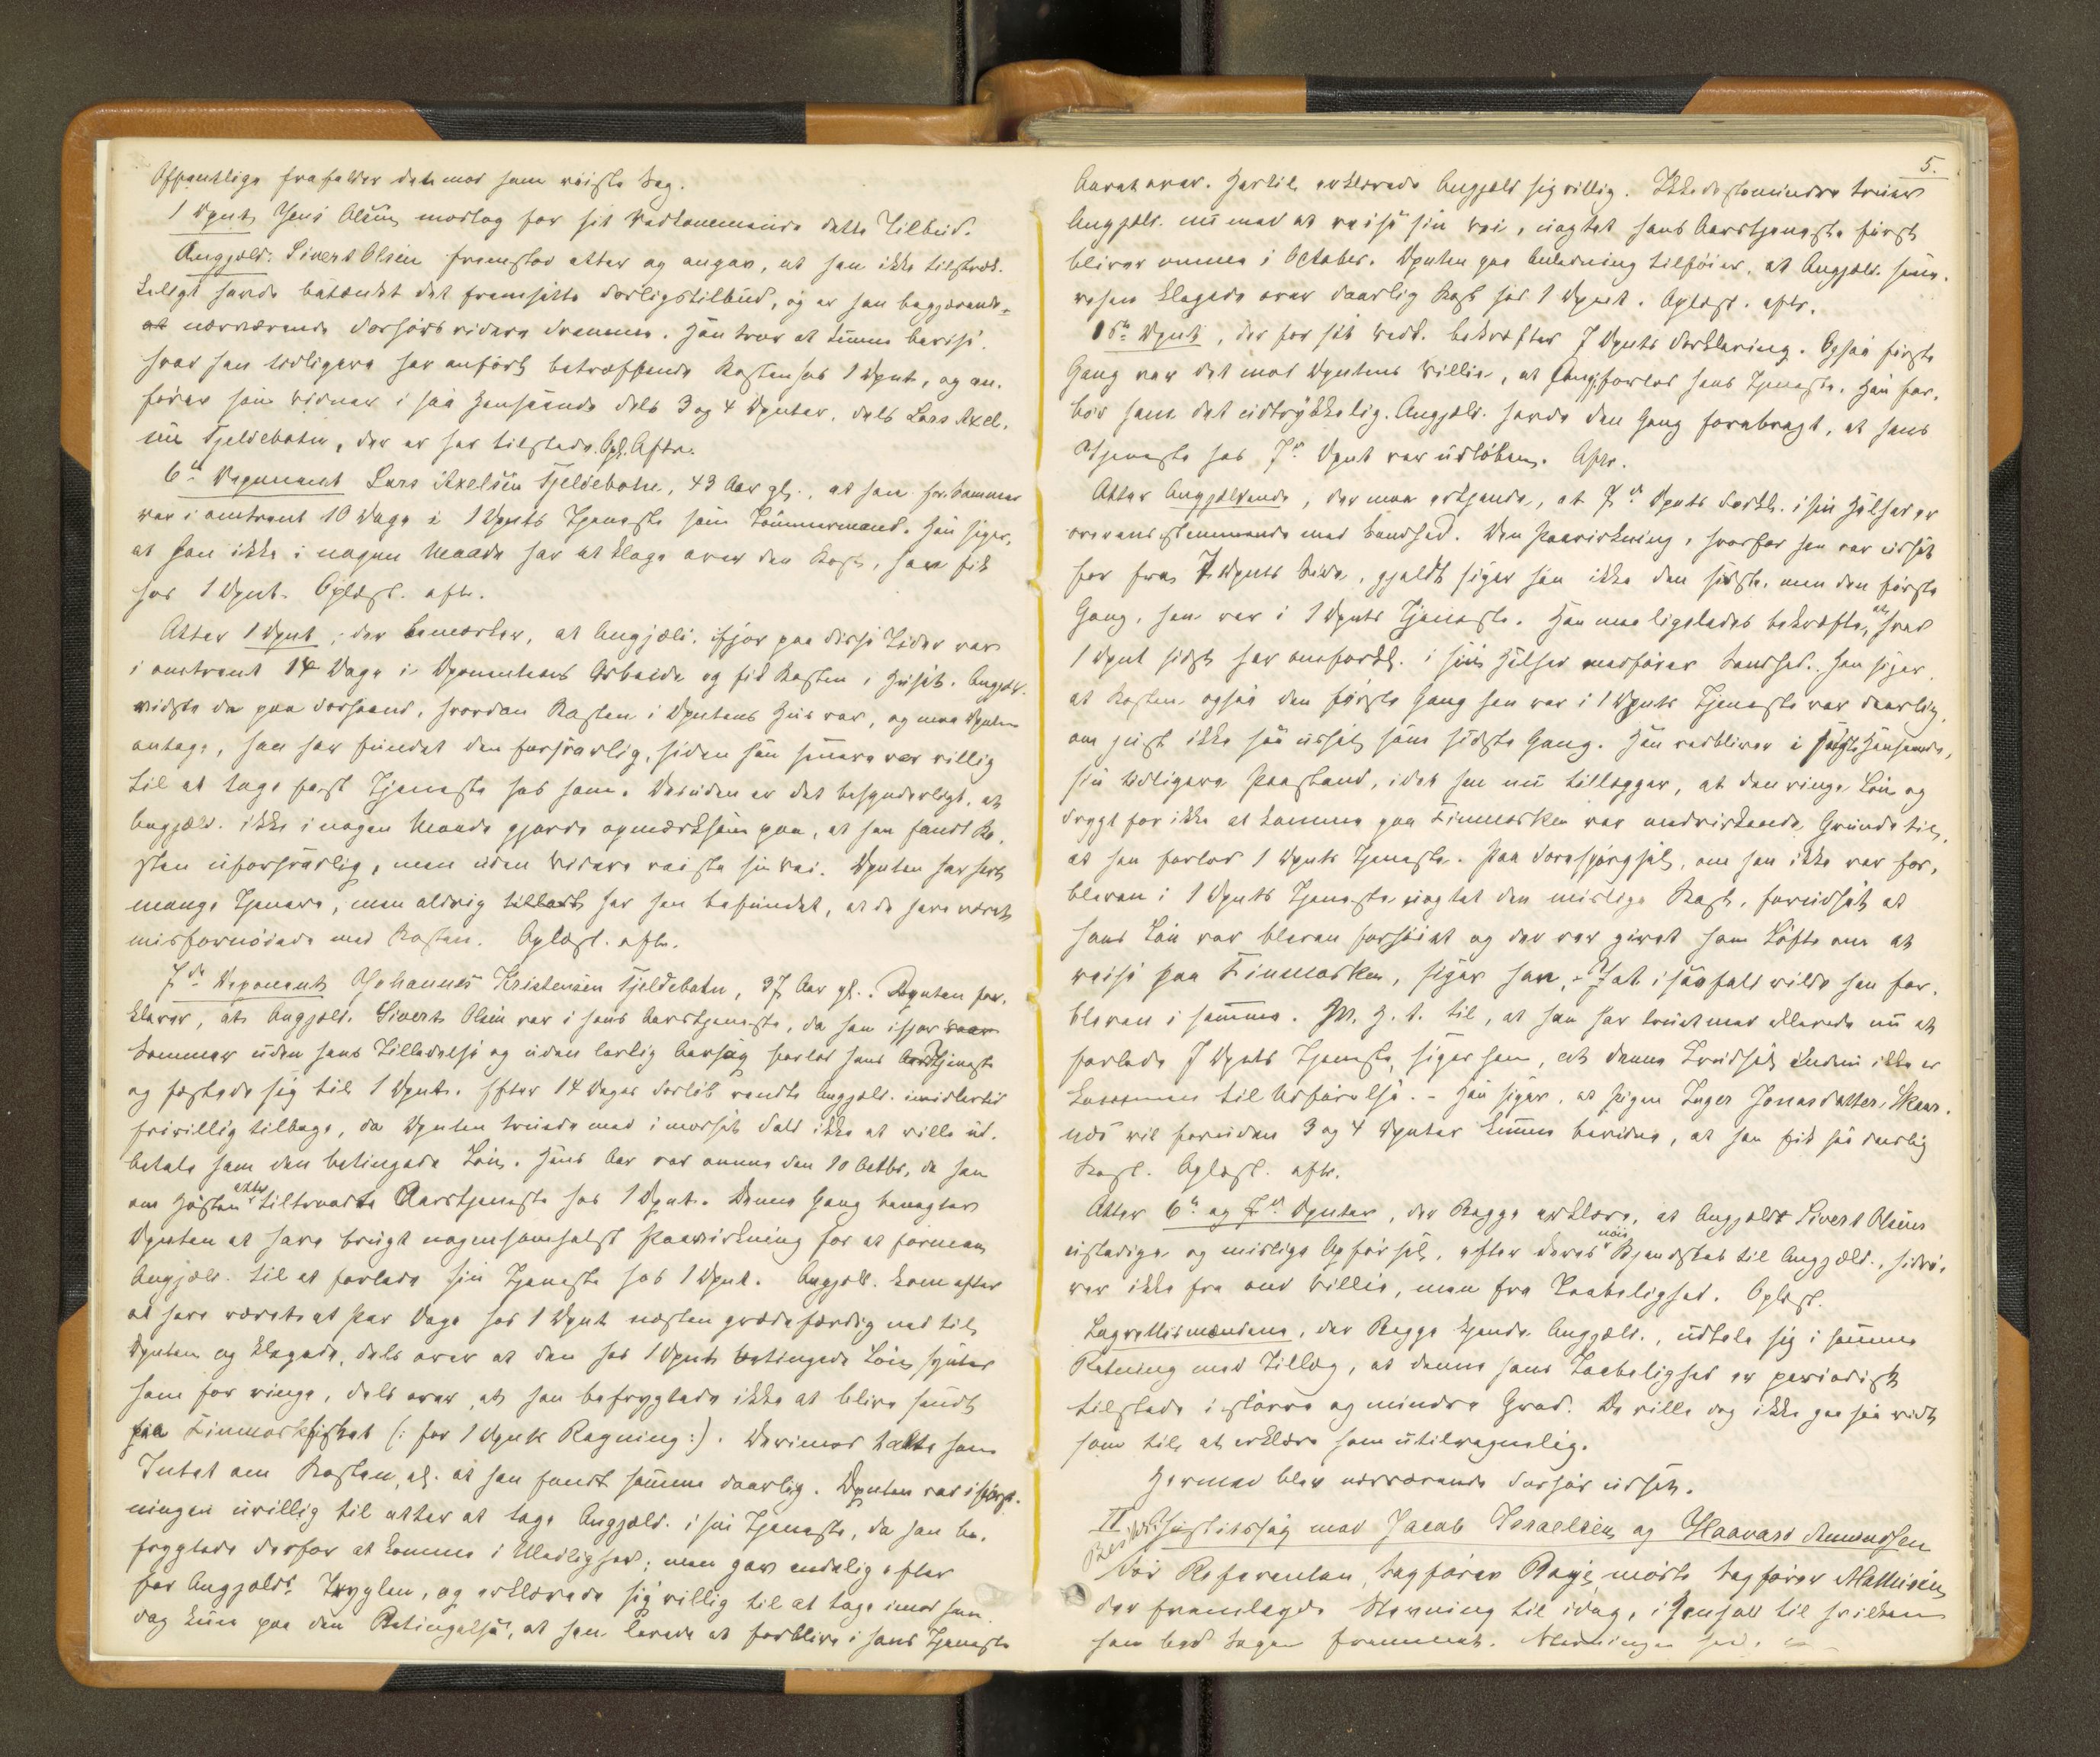 Offentlige frafalder det mod ham reiste Sag.
1 Dpnt Jens Olsen modtog for sit Vedkommende dette Tilbud.
Angjæld. Sivert Olsen fremstod atter og angav, at han ikke tilstræk-
keligt havde betænkt det fremsatte Forligstilbud, og er han begjærende,
at nærværende Forhørs videre Fremme. Han tror at kunne bevise,
hvad han tidligere har anført betræffende Kosten hos 1 Dpnt, og an-
fører som Vidner i saa Henseende dels 3 og 4 Dpnter, dels Lars Axel-
sen Fjeldebotn, der er her tilstede. Opl. Aftr.
6te Deponent Lars Axelsen Fjeldebotn, 43 Aar gl., at han for Sommer
var i omtrent 10 Dage i 1 Dpnts Tjeneste som Tømmermand. Han siger,
at han ikke i nogen Maade har at klage over den Kost, han fik
hos 1 Dpnt. Oplæst. aftr.
Atter 1 Dpnt, der bemærker, at Angjæld. ifjor paa disse Tider var
i omtrent 14 Dage i Dponentens Arbeide og fik Kosten i Huset. Angjæld.
vidste da paa Forhaand, hvordan Kosten i Dpntens Hus var, og maa Dpnten
antage, han har fundet den forsvarlig, siden han senere var villig
til at tage fast Tjeneste hos ham. Desuden er det besynderligt, at
Angjæld. ikke i nogen Maade gjorde opmærksom paa, at han fandt Ko-
sten uforsvarlig, men uden videre reiste sin Vei. Dpnten har havt
mange Tjenere, men aldrig har han befundet, at de have været
misfornøiede med Kosten. Oplæst. aftr.
7de Deponent Johannes Kristensen Fjeldebotn, 37 Aar gl. Dpnten for-
klarer, at Angjæld. Sivert Olsen var i hans Aarstjeneste, da han ifjor
Sommer uden hans Tilladelse og uden lovlig Aarsag forlod hans Aarstjeneste
og fæstede sig til 1 Dpnt. Efter 14 Dages Forløb vendte Angjæld. imidlertid
frivillig tilbage, da Dpnten truede med i modsat Fald ikke at ville ud-
betale ham den betingede Løn. Hans Aar var omme den 10 Octbr, da han
om Høsten atter tiltraadte Aarstjeneste hos 1 Dpnt. Denne Gang benegter
Dpnten at have brugt nogensomhelst Paavirkning for at formaa
Angjæld. til at forlade sin Tjeneste hos 1 Dpnt. Angjæld. kom efter
at have været et Par Dage hos 1 Dpnt næsten grædefærdig ned til
Dpnten og klagede, dels over at den hos 1 Dpnt betingede Løn syntes
ham for ringe, dels over, at han befrygtede ikke at blive sendt
paa Finmarkfisket (: for 1 Dpnts Regning:). Derimod talte han
Intet om Kosten, el. at han fandt samme daarlig. Dpnten var i Først-
ningen uvillig til atter at tage Angjæld. i sin Tjeneste, da han be-
frygtede derfor at komme i Uleilighed; men gav endelig efter
for Angjælds Tryglen, og erklærede sig villig til at tage imod ham
dog kun paa den Betingelse, at han lovede at forblive i hans Tjeneste
5.
Aaret over. Hertil erklærede Angjæld sig villig. Ikkedestomindre truer
Angjæld. nu med at reise sin Vei, uagtet hans Aarstjeneste først
bliver omme i October. Dpnten paa Anledning tilføier, at Angjæld.
klagede over daarlig Kost hos 1 Dpnt. Oplæst. aftr.
, der for sit Vedk. bekræfter 7 Dpnts Forklaring. Ogsaa første
Gang var det mod Dpntens Villie, at Angj. forlod hans Tjeneste. Han for-
bød ham det udtrykkelig. Angjæld. havde den Gang forebragt, at hans
Tjeneste hos 7de Dpnt var udløben. Aftr.
Atter Angjældende, der maa erkjende, at 7de Dpnts Forkl. i sin Helhed er
overensstemmende med Sandhed. Den Paavirkning, hvorfor han var udsat
for fra 7 Dpnts Side, gjaldt siger han ikke den sidste, men den første
Gang, han var i 1 Dpnts Tjeneste. Han maa ligeledes bekræfte, at hvad
1 Dpnt sidst har anforkl. i sin Helhed medfører Sandhed. Han siger,
at Kosten ogsaa den første Gang han var i 1 Dpnts Tjeneste var daarlig,
om just ikke saa ussel som sidste Gang. Han vedbliver i sidste Henseende,
sin tidligere Paastand, idet han nu tillægger, at den ringe Løn og
Frygt for ikke at komme paa Finmarken var medvirkende Grunde til,
at han forlod 1 Dpnts Tjeneste. Paa Forespørgsel, om han ikke var for-
bleven i 1 Dpnts Tjeneste uagtet den mislige Kost, forudsat at
hans Løn var bleven forhøiet og der var givet ham Løfte om at
reise paa Finmarken, siger han, at i saafald vilde han for-
bleven i samme. M. H. t. til, at han har truet med allerede nu at
forlade 7 Dpnts Tjeneste, siger han, at denne Trudsel endnu ikke er
kommen til Udførelse. – Han siger, at Pigen Inger Jonasdatter Skaar-
nes vil foruden 3 og 4 Dpnter kunne bevidne, at han fik saa daarlig
Kost. Oplæst. aftr.
Atter 6te og 7de Dpnter, der Begge erklære, at Angjæld Sivert Olsens
ustadige og mislige Opførsel, efter deres nøie Kjendskab til Angjæld., hidrø-
rer ikke fra ond Villie, men fra Taabelighed. Oplæst.
Lagrettismændene, der Begge kjende Angjæld., udtale sig i samme
Retning med Tillæg, at denne hans Taabelighed er periodisk
tilstede i større og mindre Grad. De ville dog ikke gaa saa vidt
som til at erklære ham utilregnelig.
Hermed blev nærværende Forhør udsat.
II Justitssag mod Jacob Israelsen og Haavard Amundsen
For Referenten, Sagfører Roye, mødte Sagfører Mathisen
der fremlagde Stevning til idag, i Henhold til hvilken
han bad Sagen fremmet. Stevningen